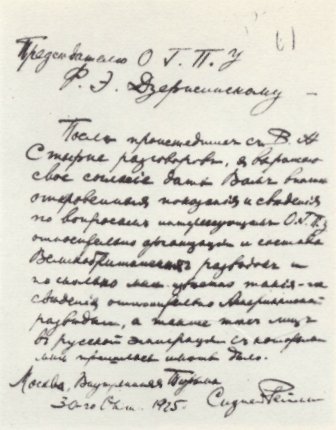 61
Председателю О Г. П. У
Ф. Э. Дзержинскому
После происшедших съ В. А
Стырне разговоров, я выражаю
свое согласие дать Вамъ вполне
откровенныя показания и сведения
по вопросамъ интересующимъ О.Г.П.У
относительно организации и состава
Великобританской разведки и
по сколько мне известно такія-же
сведения относительно Американской
разведки, а также тех лицъ
въ русской эмиграции съ которыми
мне пришлось иметь дело.
Москва, Внутренняя Тюрьма
30-го Окт. 1925. Сидней Рейлли